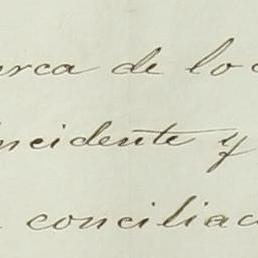 erca de lo
incidente y
conciliac